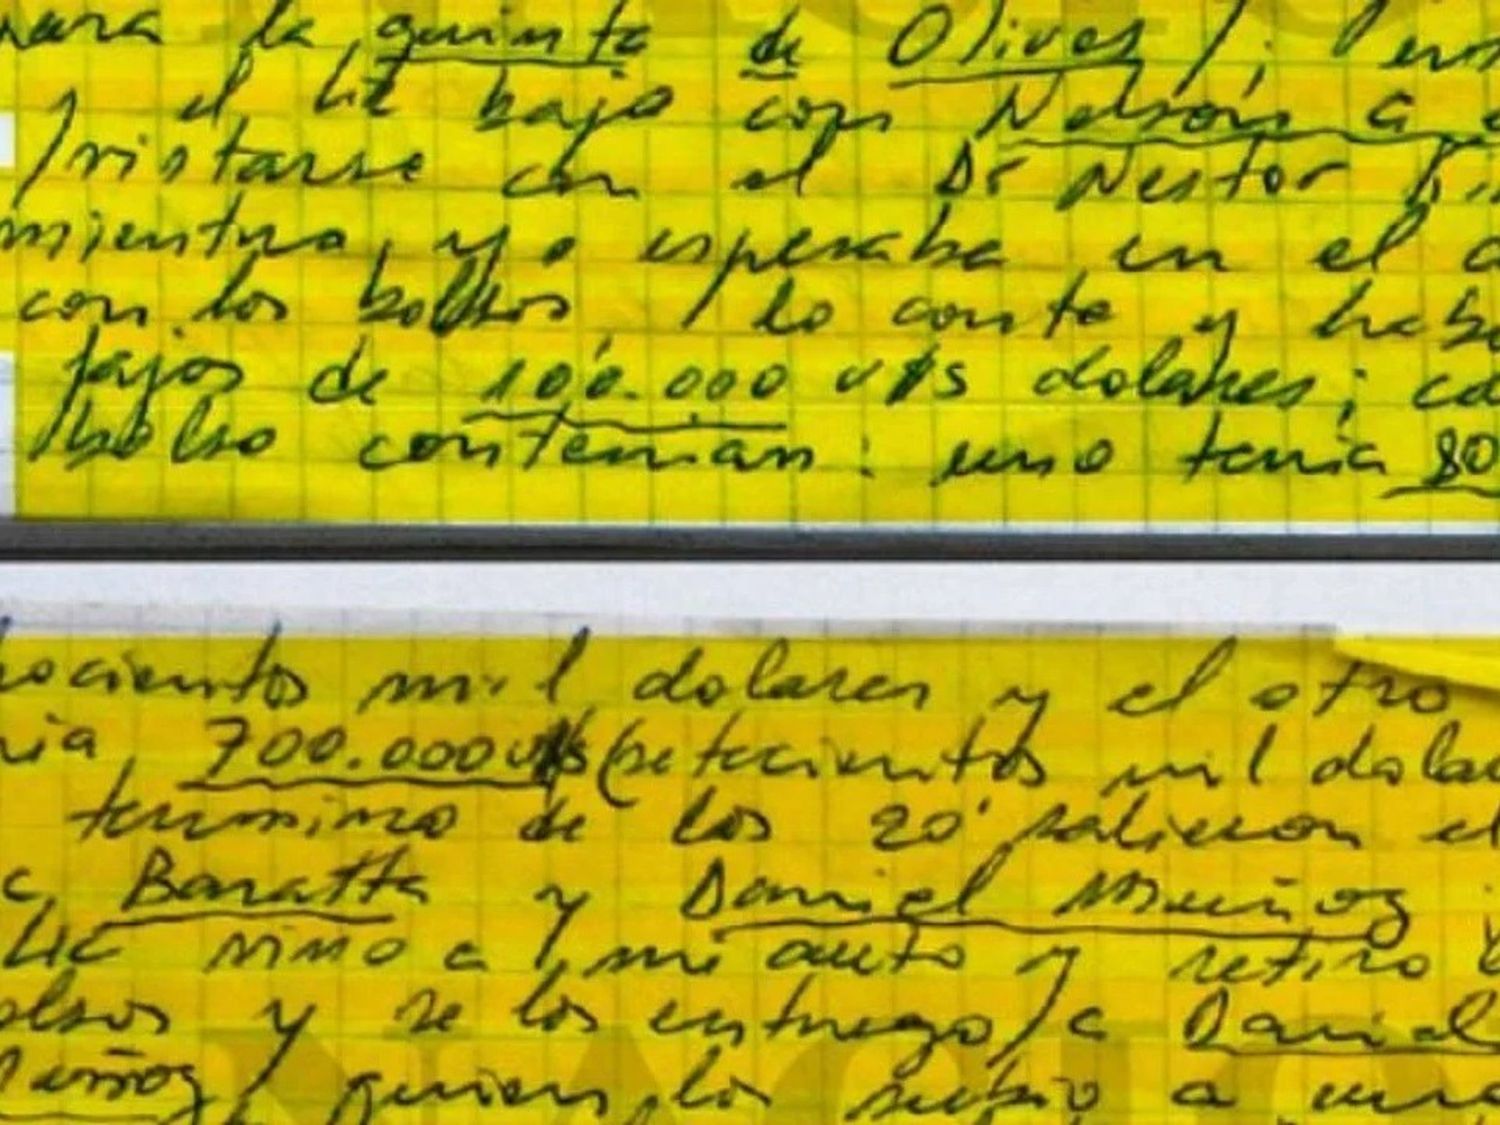 para la quinta de Olivos /;
el Lic bajo con Nelson a
/ vistarse con el Dr Nestor
mientras, yo esperaba en el
con los bolsos / lo conte y hab
fajos de 100.000 u$s dolares;
bolso contenian: uno tenia 80
ocientos mil dolares y el otro
nia 700.000 u$s (setecientos mil dola
termino de los 20' salieron el
c, Baratta y Daniel Muñoz
Lic vino a mi auto y retiro
olsos y se los entrego a Daniel
Muñoz / quien los subio a una